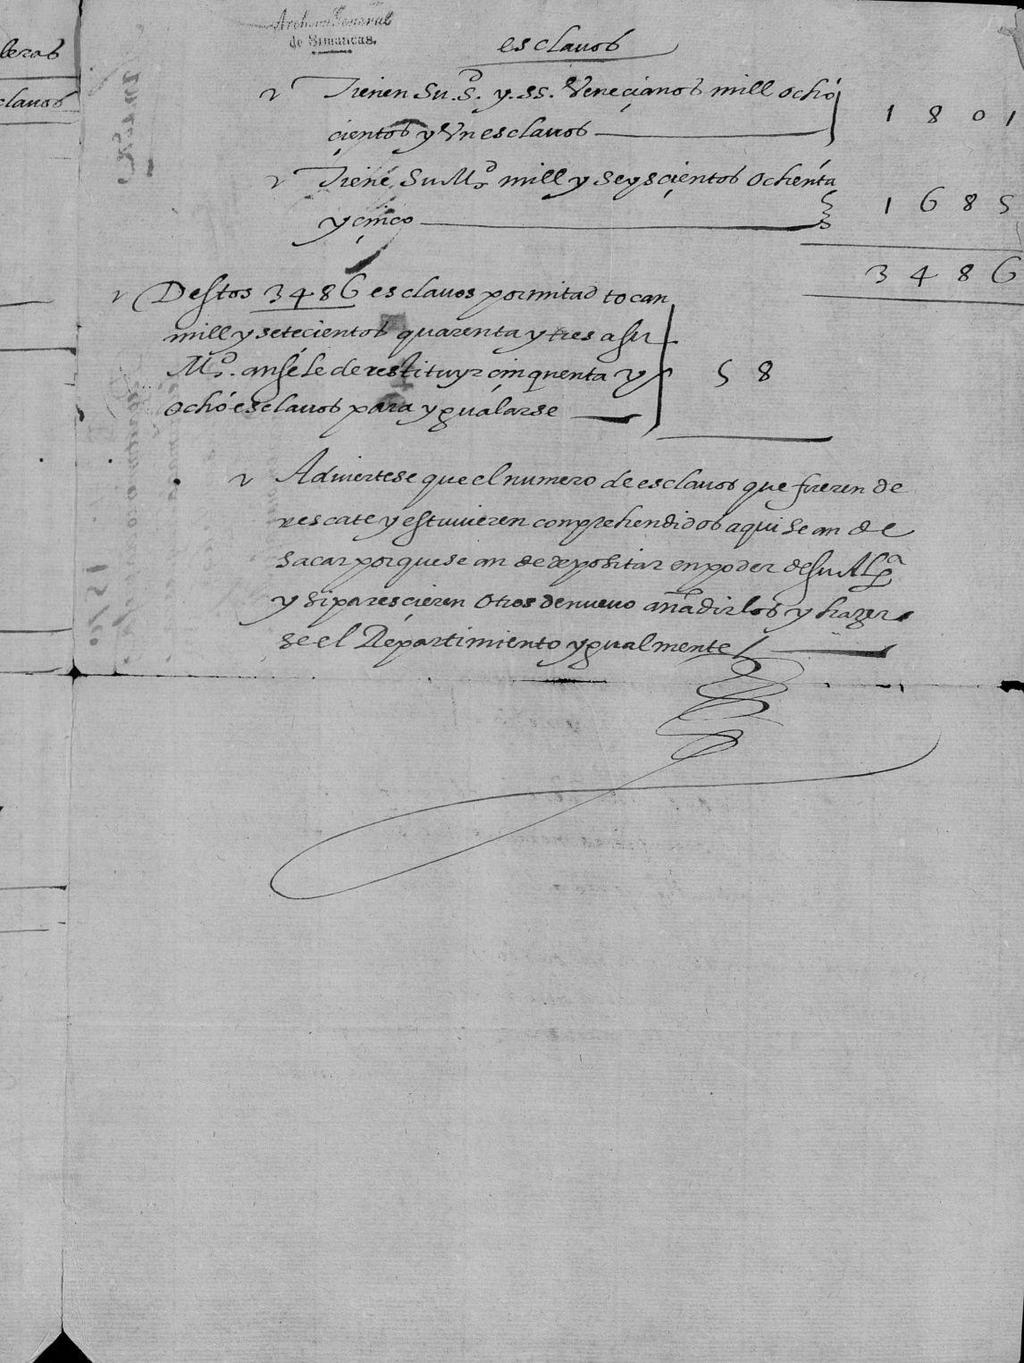 Archivo General
de Simancas.
leras
clavos
esclavos
Tienen Su. Sd. y. SS. Venecianos mill ocho
cientos y Un esclavos 1801
Tiene, Su Md. mill y seyscientos ochenta
y cinco 1685
3486
Destos 3486 esclavos por mitad tocan
mill y setecientos quarenta y tres a su
Md. anse le de restituyr cinquenta y
ocho esclavos para ygualarse 58
Adviertese que el numero de esclavos que fueren de
rescate y estuvieren comprehendidos aqui se an de
sacar porque se an de depositar en poder de su Alza
y si parescieren otros de nuevo añadirlos y hazer
se el Repartimiento ygualmente